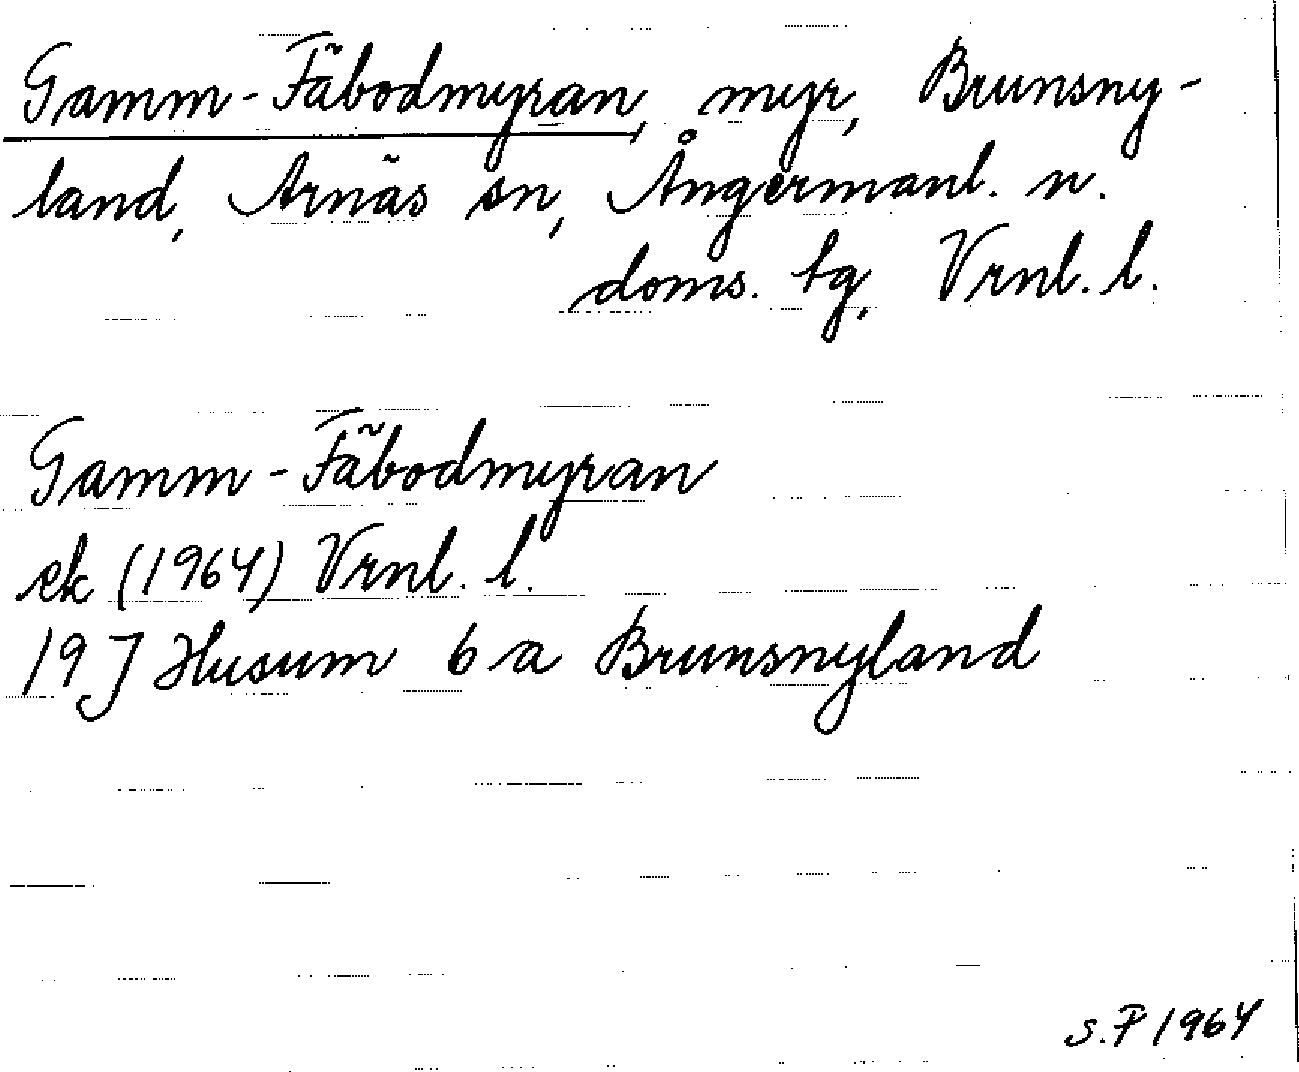 Gamm-Fäbodmyran, myr, Brunsny-
land, Arnäs sn, Ångermanl. n.
doms. tg, Vrnl. l.
Gamm-Fäbodmyran
ek (1964) Vrnl. l.
19J Husum 6 a Brunsnyland
S.F 1964